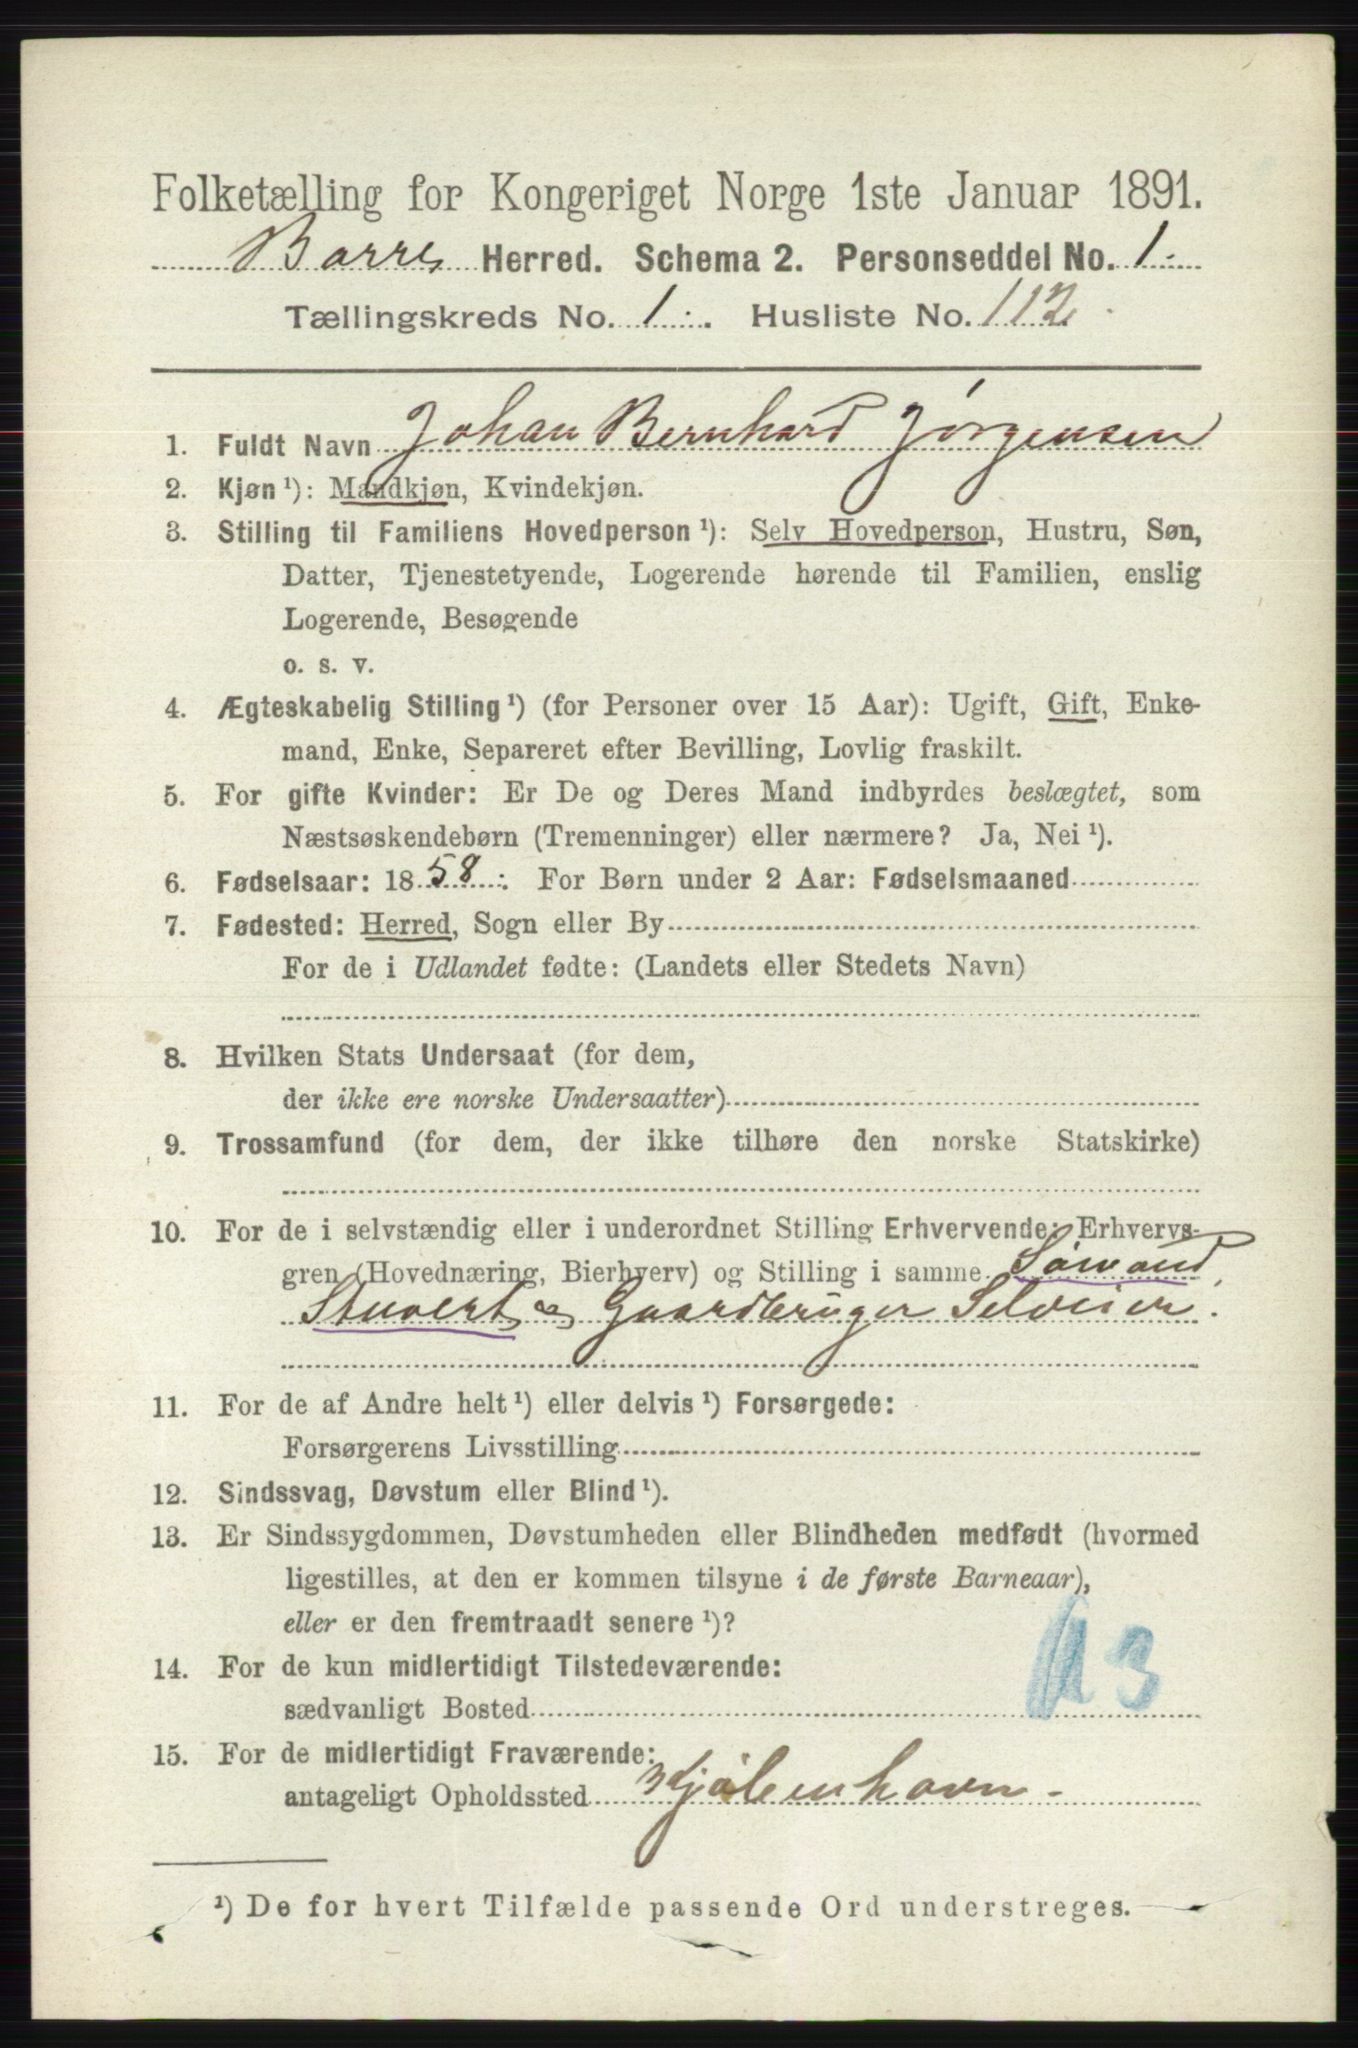 Folketælling for Kongeriget Norge 1ste Januar 1891.
Borre Herred. Schema 2. Personseddel No. 1.
Tællingskreds No. 1. Husliste No. 112.
1. Fuldt Navn Johan Bernhard Jørgensen
2. Kjøn ¹): Mandkjøn, Kvindekjøn.
3. Stilling til Familiens Hovedperson ¹): Selv Hovedperson, Hustru, Søn,
Datter, Tjenestetyende, Logerende hørende til Familien, enslig
Logerende, Besøgende
o. s. v.
4. Ægteskabelig Stilling ¹) (for Personer over 15 Aar): Ugift, Gift, Enke-
mand, Enke, Separeret efter Bevilling, Lovlig fraskilt.
5. For gifte Kvinder: Er De og Deres Mand indbyrdes beslægtet, som
Næstsøskendebørn (Tremenninger) eller nærmere? Ja, Nei ¹).
6. Fødselsaar: 1858. For Børn under 2 Aar: Fødselsmaaned
7. Fødested: Herred, Sogn eller By
For de i Udlandet fødte: (Landets eller Stedets Navn)
8. Hvilken Stats Undersaat (for dem,
der ikke ere norske Undersaatter)
9. Trossamfund (for dem, der ikke tilhøre den norske Statskirke)
10. For de i selvstændig eller i underordnet Stilling Erhvervende: Erhvervs-
gren (Hovednæring, Bierhverv) og Stilling i samme Sømand,
Stuvert og Gaardbruger Selveier.
11. For de af Andre helt ¹) eller delvis ¹) Forsørgede:
Forsørgerens Livsstilling
12. Sindssvag, Døvstum eller Blind ¹).
13. Er Sindssygdommen, Døvstumheden eller Blindheden medfødt (hvormed
ligestilles, at den er kommen tilsyne i de første Barneaar),
eller er den fremtraadt senere ¹)?
14. For de kun midlertidigt Tilstedeværende:
sædvanligt Bosted
15. For de midlertidigt Fraværende:
antageligt Opholdssted Kjøbenhavn -
¹) De for hvert Tilfælde passende Ord understreges.